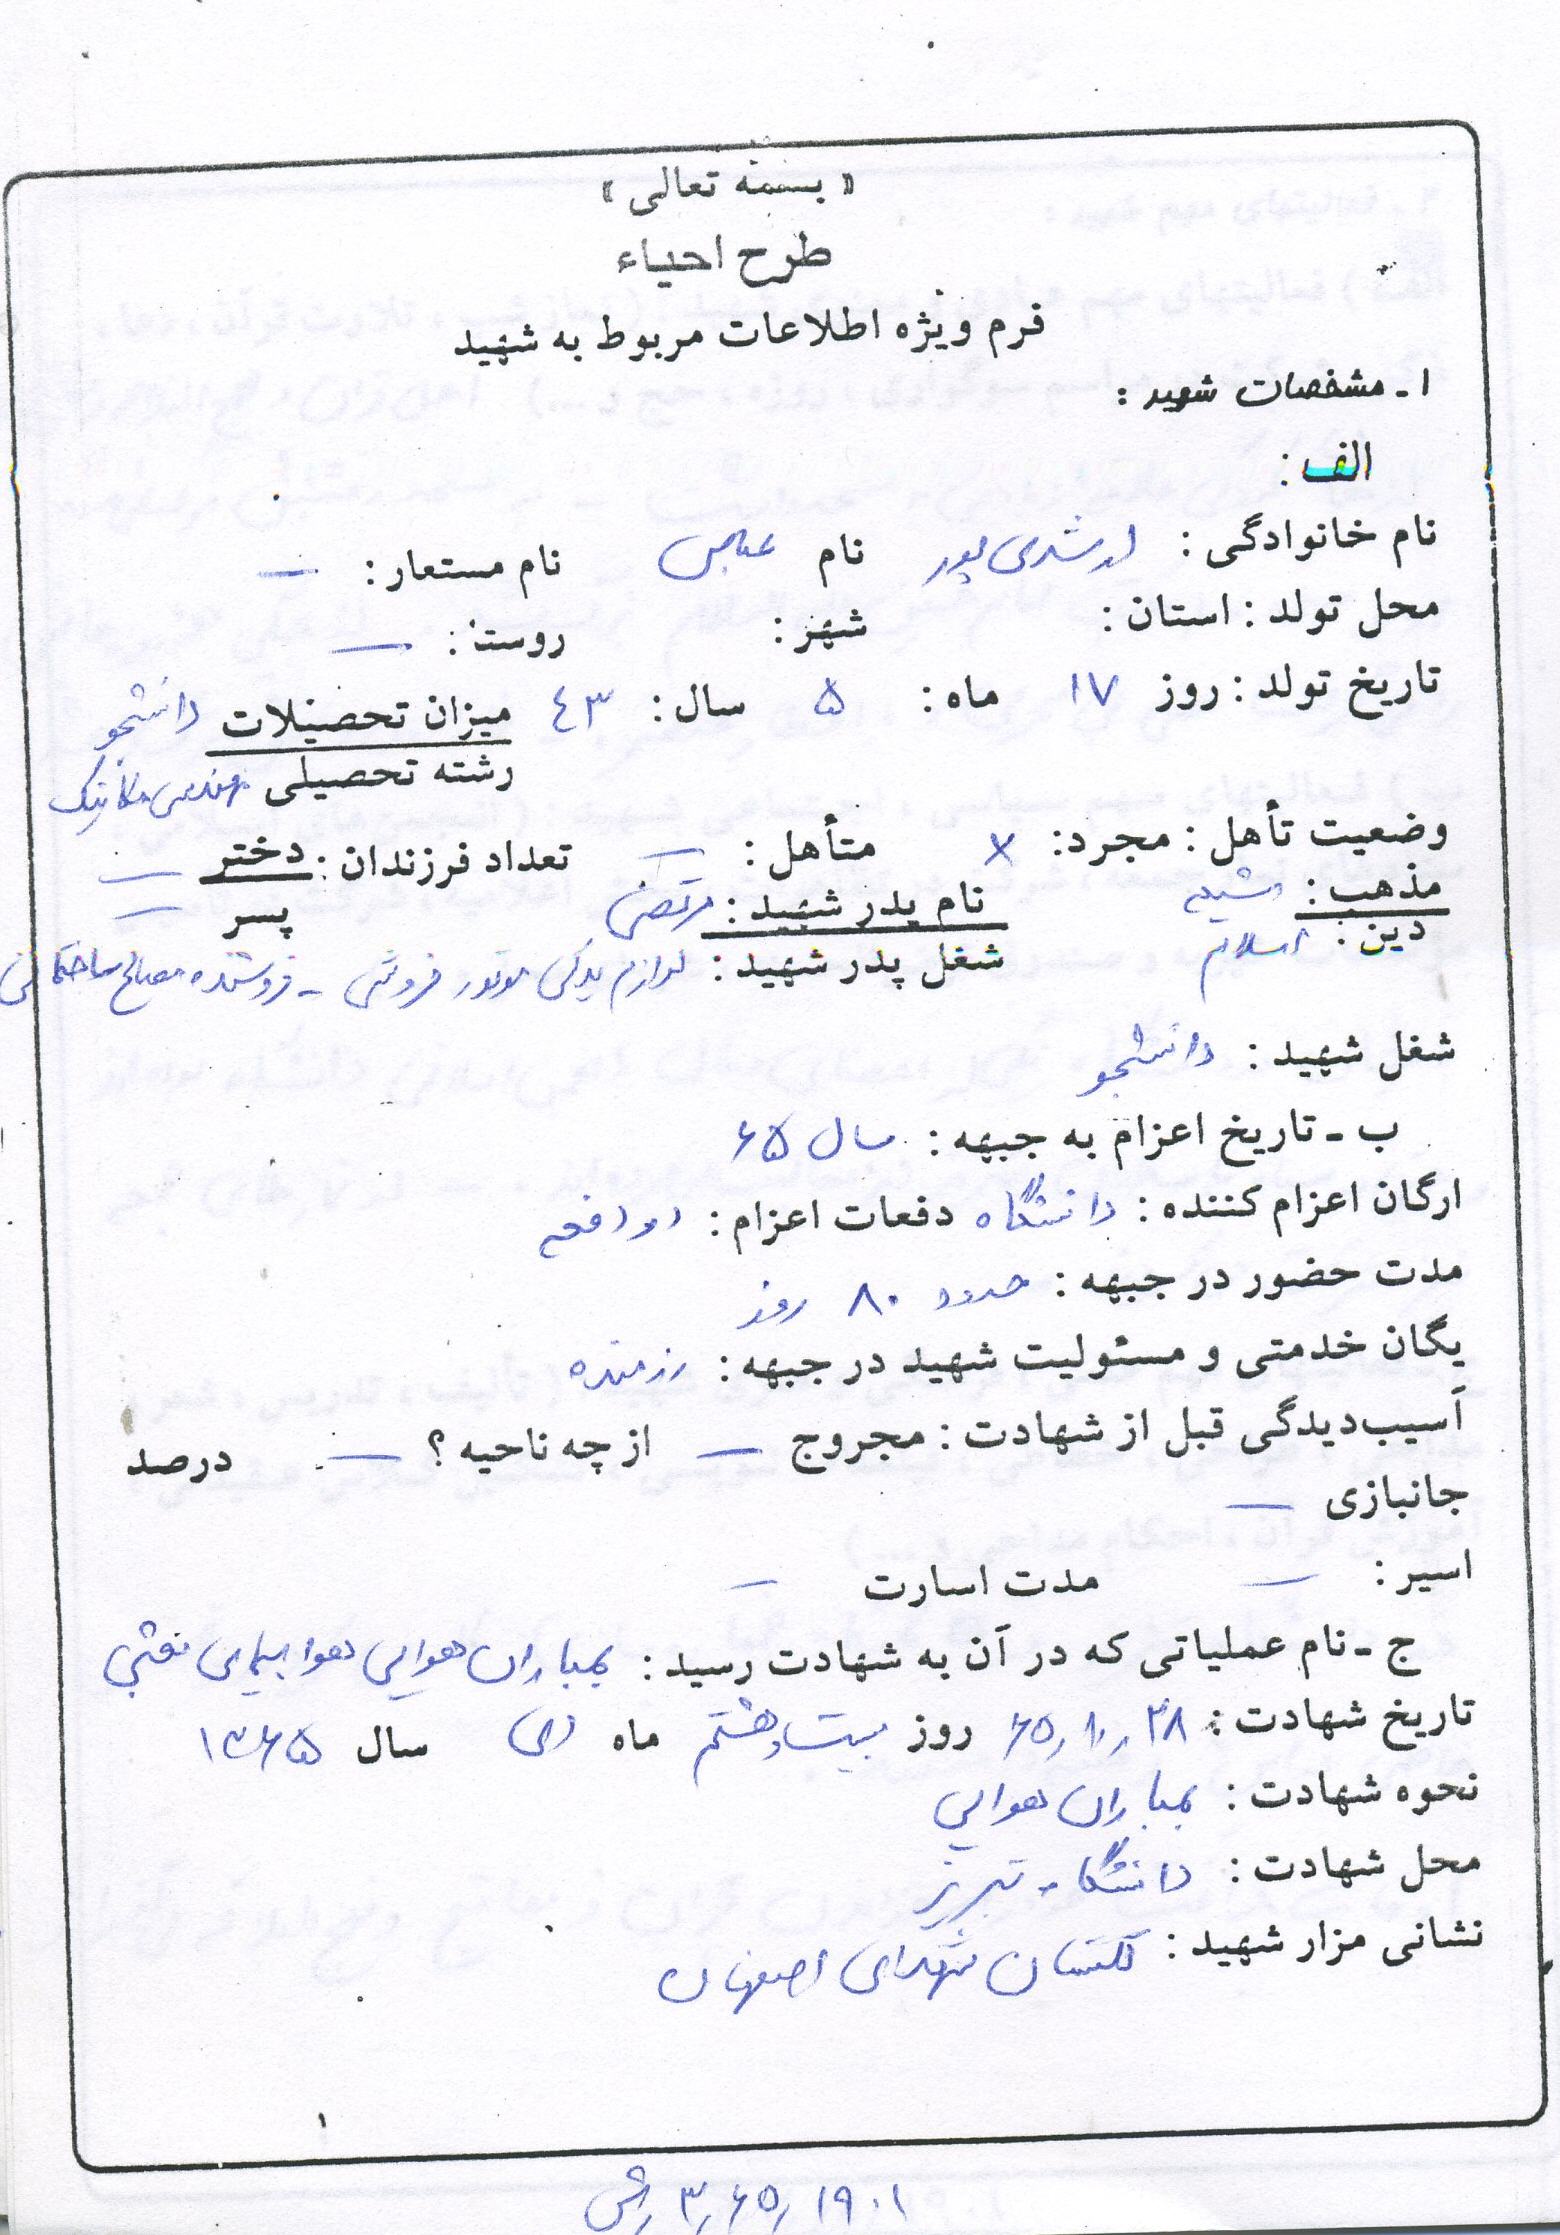 « بسمه تعالی »
طرح احیاء
فرم ویژه اطلاعات مربوط به شهید
۱ ـ مشخصات شهید :
الف :
نام خانوادگی : ارشدی پور نام عباس نام مستعار : —
محل تولد : استان : شهر : روستا : —
تاریخ تولد : روز ۱۷ ماه : ۵ سال : ۴۳ میزان تحصیلات دانشجو
رشته تحصیلی مهندسی مکانیک
وضعیت تأهل : مجرد : × متأهل : — تعداد فرزندان : دختر —
مذهب : شیعه نام پدر شهید : مرتضی پسر —
دین : اسلام شغل پدر شهید : لوازم یدکی موتور فروشی - فروشنده مصالح ساختمانی
شغل شهید : دانشجو
ب ـ تاریخ اعزام به جبهه : سال ۶۵
ارگان اعزام کننده : دانشگاه دفعات اعزام : دو دفعه
مدت حضور در جبهه : حدود ۸۰ روز
یگان خدمتی و مسئولیت شهید در جبهه : رزمنده
آسیب‌دیدگی قبل از شهادت : مجروح — از چه ناحیه ؟ — درصد
جانبازی —
اسیر : — مدت اسارت —
ج ـ نام عملیاتی که در آن به شهادت رسید : بمباران هوایی هواپیمای بعثی
تاریخ شهادت : ۲۸ر۱۰ر۶۵ روز بیست و هشتم ماه دی سال ۱۳۶۵
نحوه شهادت : بمباران هوایی
محل شهادت : دانشگاه تبریز
نشانی مزار شهید : گلستان شهدای اصفهان
۱
۱۹۰۱ر۶۵ر۳رش